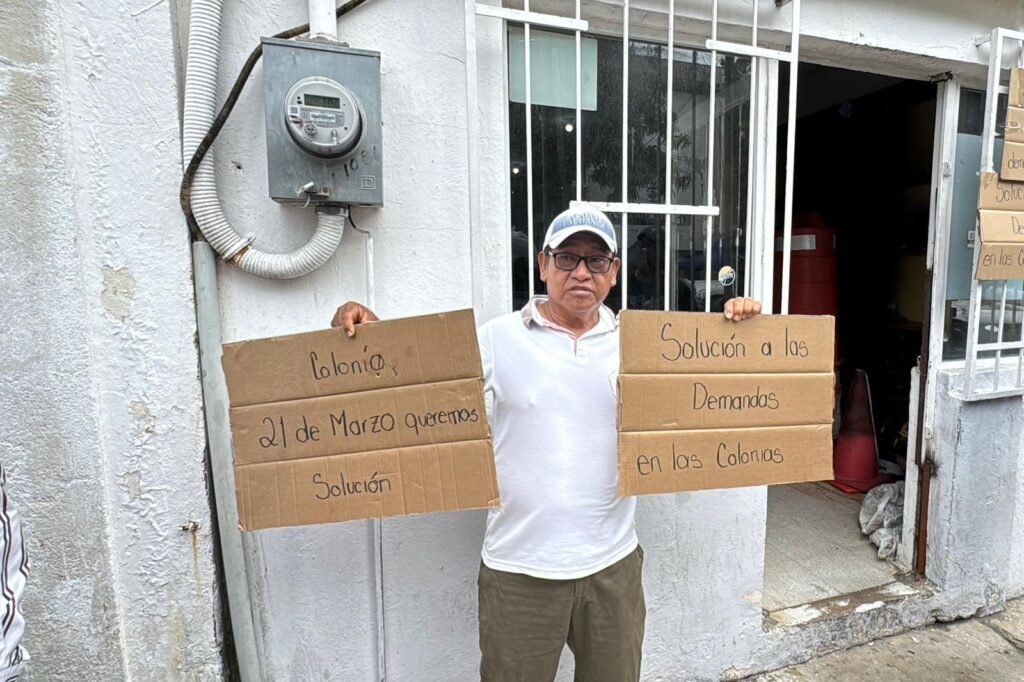 Colonia,
21 de Marzo queremos
Solución
Solución a las
Demandas
en las Colonias
Soluci
De
en las Co